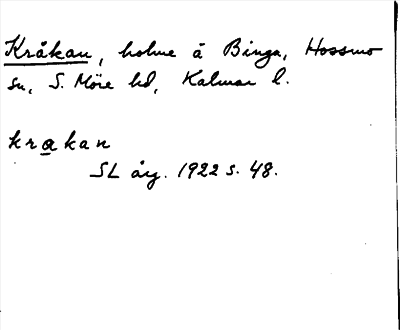 Kråkan, holme å Binga, Hossmo
sn, S. Möre hd, Kalmar l.
krakan
SL årg. 1922 s. 48.